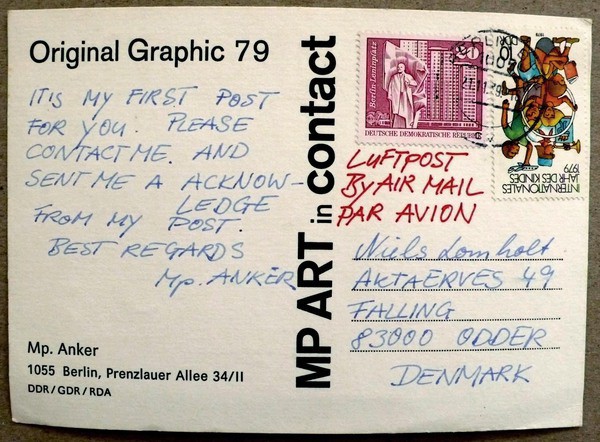 Original Graphic 79
IT IS MY FIRST POST
FOR YOU. PLEASE
CONTACT ME. AND
SENT ME A ACKNOW-
LEDGE
FROM MY POST.
BEST REGARDS
Mp. ANKER
Mp. Anker
1055 Berlin, Prenzlauer Allee 34/II
DDR/GDR/RDA
MP ART in contact
Berlin Leninplatz
DEUTSCHE DEMOKRATISCHE REPUBLIK
DDR
10
INTERNATIONALES
JAHR DES KINDES
1979
LUFTPOST
By AIR MAIL
PAR AVION
Niels Lomholt
AKTAERVES 49
FALLING
83000 ODDER
DENMARK